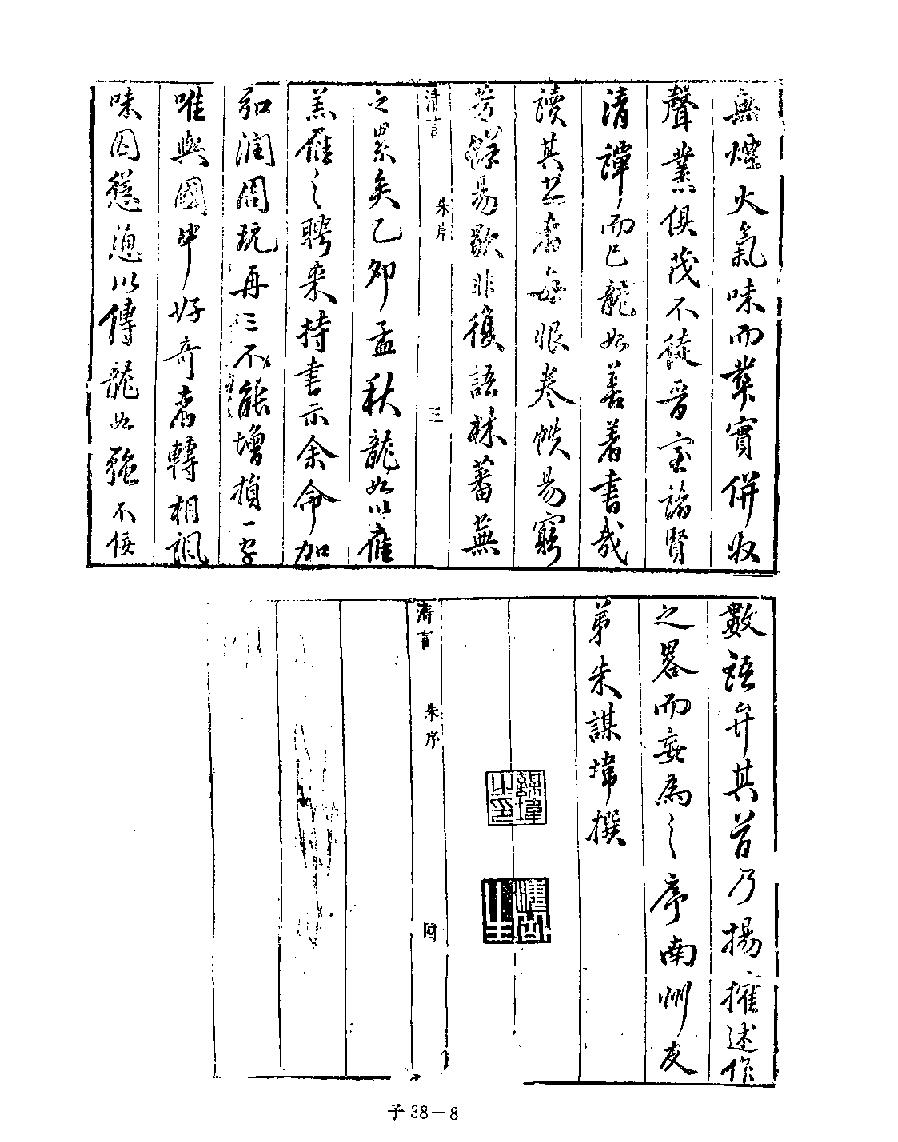 無煙火氣味而葉實併收
聲業俱茂不徒晉室諸賢
清譚而已龍如善著書哉
讀其書者每恨卷帙易窮
芳餘易歇非複語妹蕃蕪
清言
朱序
三
之累矣乙卯孟秋龍如以應
羔雁之聘來持書示余命加
弘潤周玩再三不能增損一字
唯與國中好奇者轉相諷
味因慫恿以傳龍如強不佞
數語弁其首乃揚搉述作
之畧而妄為之序南州友
弟朱謀㙔撰
清言
朱序
四
子38-8